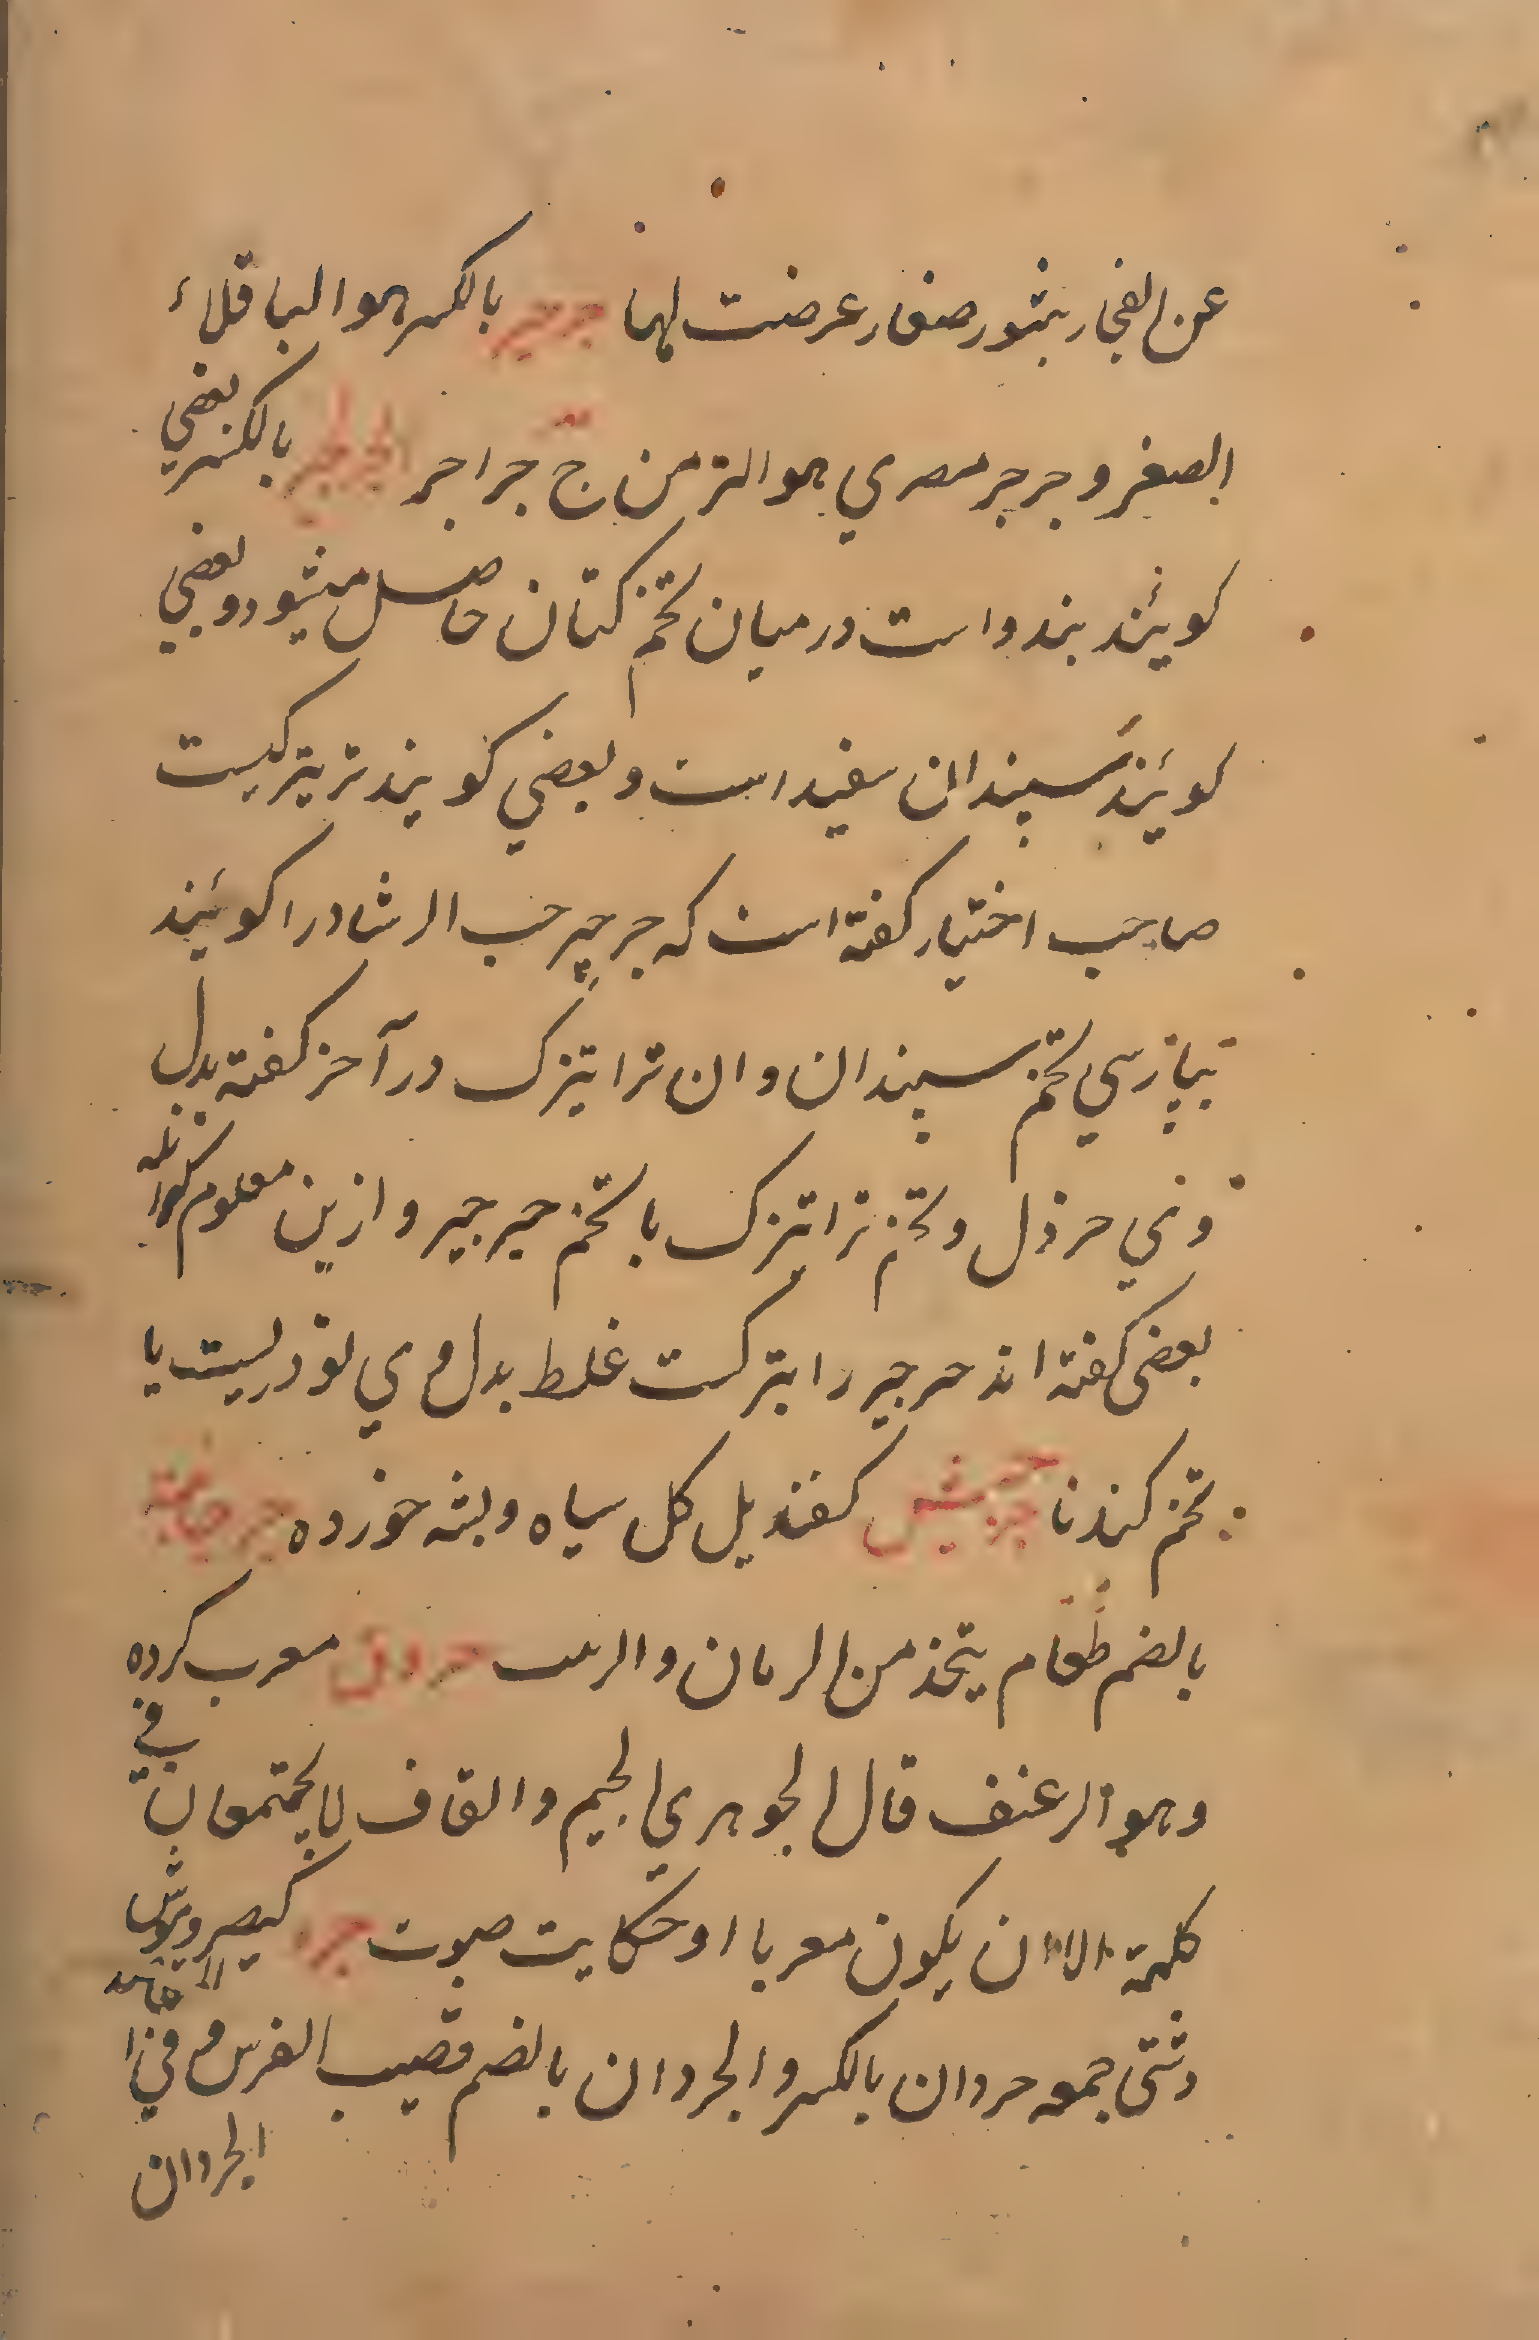 عن الفجار بثور صغار عرضت لها جرجر بالکسر هو الباقلاء
الصغر و جرجر مصري هو الترمس ج جراجر الجرجیر بالکسر بعضي
کویند بذر واست در میان تخم کتان حاصل میشود و بعضي
کویند سپندان سفید است و بعضي کویند تریترکیست
صاحب اختیار کفته است که جرجیر حب الرشاد را کویند
بپارسي تخم سپندان و ان تراتیزک در آخر کفته بدل
وي خردل و تخم تراتیزک با تخم جیرجیر و ازین معلوم
بعضی کفته اند جرجیر را بترکست غلط بدل وي تودریست یا
تخم کندنا کقندیل کل سیاه و پشه خورده
بالضم طعام یتخذ من الرمان و جردق معرب کرده
و هو الرغیف قال الجوهري الجیم و القاف لا یجتمعان في
کلمة الا ان یکون معربا او حکایت صوت جرد
دشتی جمعه جردان بالکسر و الجردان بالضم قضیب الفرس و في
الجردان